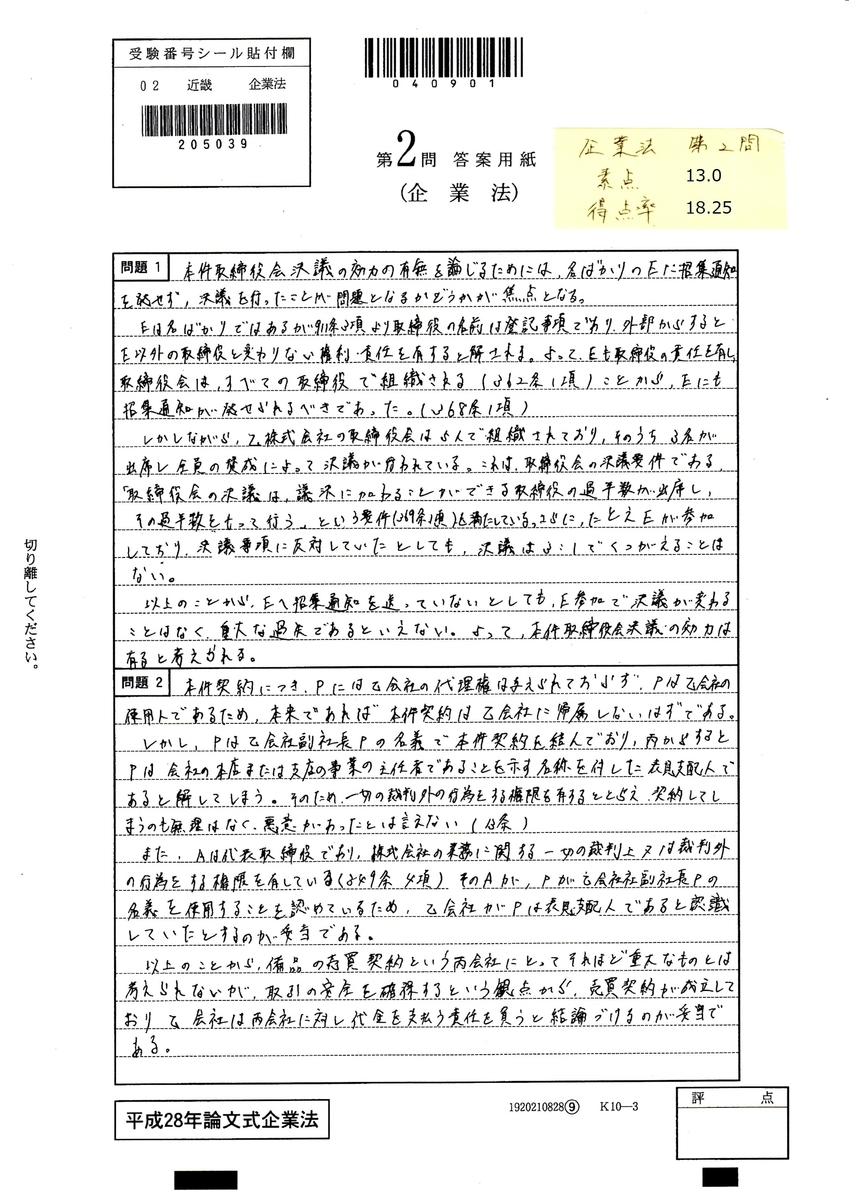 受験番号シール貼付欄
02 近畿 企業法
205039
040901
第2問 答案用紙
(企業法)
企業法 第2問
素点 13.0
得点率 18.25
切り離してください。
問題1 本件取締役会決議の効力の有無を論じるためには、名ばかりのEに招集通知
を発せず、決議を行ったことが問題となるかどうかが焦点となる。
Eは名ばかりではあるが911条3項より取締役の名前は登記事項であり、外部からすると
E以外の取締役と変わりない権利・責任を有すると解される。よって、Eも取締役の責任を有し、
取締役会は、すべての取締役で組織される(362条1項)ことから、Eにも
招集通知が発せられるべきであった。(368条1項)
しかしながら、乙株式会社の取締役会は5人で組織されており、そのうち3名が
出席し全員の賛成によって決議が行われている。これは、取締役会の決議要件である、
「取締役会の決議は、議決に加わることができる取締役の過半数が出席し、
その過半数をもって行う」という要件(369条1項)を満たしている。さらに、たとえEが参加
しており、決議事項に反対していたとしても、決議は3:1でくつがえることは
ない。
以上のことから、Eへ招集通知を送っていないとしても、E参加で決議が変わる
ことはなく、重大な過失であるといえない。よって、本件取締役会決議の効力は
有ると考えられる。
問題2 本件契約につき、Pには乙会社の代理権は与えられておらず、Pは乙会社の
使用人であるため、本来であれば本件契約は乙会社に帰属しないはずである。
しかし、Pは乙会社副社長Pの名義で本件契約を結んでおり、丙からすると
Pは会社の本店または支店の事業の主任者であることを示す名称を付した表見支配人で
あると解してしまう。そのため、一切の裁判外の行為をする権限を有するととらえ、契約してし
まうのも無理はなく、悪意があったとは言えない(13条)
また、Aは代表取締役であり、株式会社の業務に関する一切の裁判上又は裁判外
の行為をする権限を有している(349条4項)そのAが、Pが乙会社社副社長Pの
名義を使用することを認めているため、乙会社がPは表見支配人であると認識
していたとするのが妥当である。
以上のことから、備品の売買契約という丙会社にとってそれほど重大なものとは
考えられないが、取引の安全を確保するという観点から、売買契約が成立して
おり乙会社は丙会社に対し代金を支払う責任を負うと結論づけるのが妥当で
ある。
平成28年論文式企業法
1920210828⑨ K10―3
評点